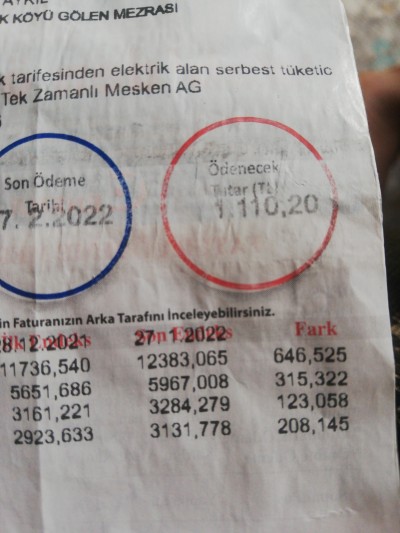 K KÖYÜ GÖLEN MEZRASI
k tarifesinden elektrik alan serbest tüketic
Tek Zamanlı Mesken AG
Son Ödeme
Tarihi
7. 2.2022
Ödenecek
Tutar (TL)
1.110,20
in Faturanızın Arka Tarafını İnceleyebilirsiniz.
İlk Endeks Son Endeks Fark
27.1.2022
11736,540 12383,065 646,525
5651,686 5967,008 315,322
3161,221 3284,279 123,058
2923,633 3131,778 208,145